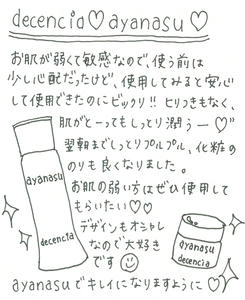 decencia♡ayanasu♡
お肌が弱くて敏感なので、使う前は
少し心配だったけど、使用してみると安心
して使用できたのにビックリ!! ヒリつきもなく、
肌がとーってもしっとり潤うー♡"
翌朝までしっとりプルプル、化粧の
のりも良くなりました。
お肌の弱い方はぜひ使用して
もらいたい♡♡
デザインもオシャレ
なので大好き
です☺
ayanasu
decencia
ayanasu
decencia
ayanasuでキレイになりますように♡